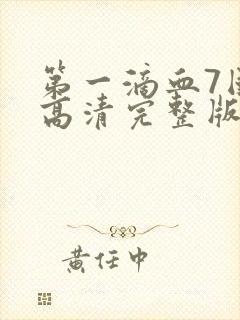 第一滴血7
高清完整版
黄任中